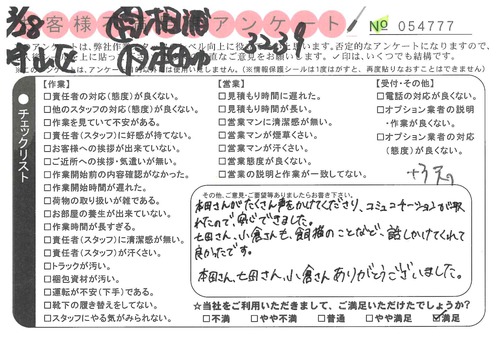 アンケート
№ 054777
3/28
守山区
3239
【作業】
□責任者の対応(態度)が良くない。
□他のスタッフの対応(態度)が良くない。
□作業を見ていて不安がある。
□責任者(スタッフ)に好感が持てない。
□お客様への挨拶が出来ていない。
□ご近所への挨拶・気遣いが無い。
□作業開始前の内容確認がなかった。
□作業開始時間が遅れた。
□荷物の取り扱いが雑である。
□お部屋の養生が出来ていない。
□作業時間が長すぎる。
□責任者(スタッフ)に清潔感が無い。
□責任者(スタッフ)が汗くさい。
□トラックが汚い。
□梱包資材が汚い。
□運転が不安(下手)である。
□靴下の履き替えをしてない。
□スタッフにやる気がみられない。
【営業】
□見積もり時間に遅れた。
□見積もり時間が長い。
□営業マンに清潔感が無い。
□営業マンが煙草くさい。
□営業マンが汗くさい。
□営業態度が良くない。
□営業の説明と作業が一致してない。
【受付・その他】
□電話の対応が良くない。
□オプション業者の説明
・作業が良くない。
□オプション業者の対応
(態度)が良くない。
チェックリスト
その他、ご意見・ご要望等ありましたらお書き下さい。
本田さんがたくさん声をかけてくださり、コミュニケーションが取
れたので、安心できました。
七田さん、小倉さんも、飼猫のことなど、話しかけてくれて
良かったです。
本田さん、七田さん、小倉さんありがとうございました。
☆当社をご利用いただきまして、ご満足いただけたでしょうか?
□不満 □やや不満 □普通 □やや満足 ☑満足